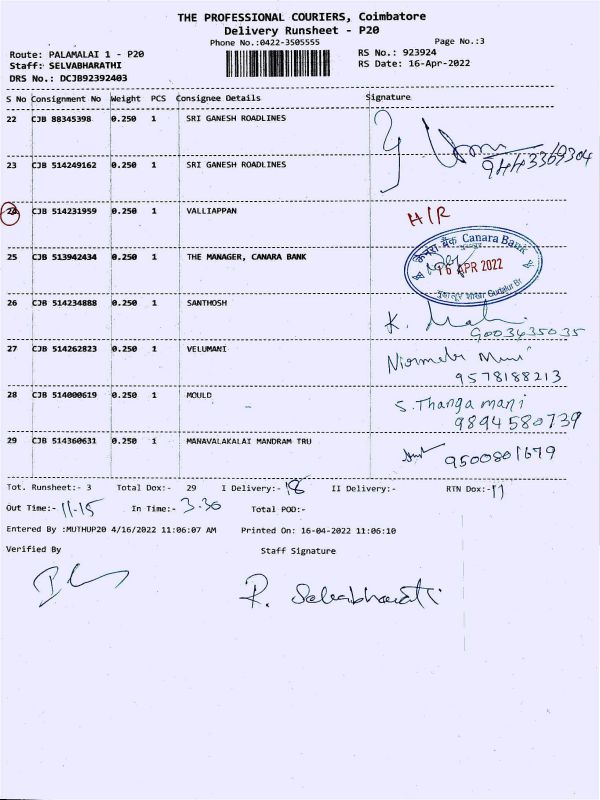 THE PROFESSIONAL COURIERS, Coimbatore
Delivery Runsheet - P20
Phone No.:0422-3505555
Page No.:3
Route: PALAMALAI 1 - P20
RS No.: 923924
Staff: SELVABHARATHI
RS Date: 16-Apr-2022
DRS No.: DCJB92392403
S No Consignment No Weight PCS Consignee Details Signature
22 CJB 88345398 0.250 1 SRI GANESH ROADLINES
9443369304
23 CJB 514249162 0.250 1 SRI GANESH ROADLINES
24 CJB 514231959 0.250 1 VALLIAPPAN H/R
केनरा बैंक Canara Bank
25 CJB 513942434 0.250 1 THE MANAGER, CANARA BANK
16 APR 2022
Gudalur Br
26 CJB 514234888 0.250 1 SANTHOSH
K.
9003435035
27 CJB 514262823 0.250 1 VELUMANI
9578188213
28 CJB 514000619 0.250 1 MOULD S. Thanga mani
9894580739
29 CJB 514360631 0.250 1 MANAVALAKALAI MANDRAM TRU
9500801679
Tot. Runsheet:- 3 Total Dox:- 29 I Delivery:- 18 II Delivery:- RTN Dox:- 11
Out Time:- 11-15 In Time:- 3.30 Total POD:-
Entered By :MUTHUP20 4/16/2022 11:06:07 AM Printed On: 16-04-2022 11:06:10
Verified By Staff Signature
R. Selvabharathi